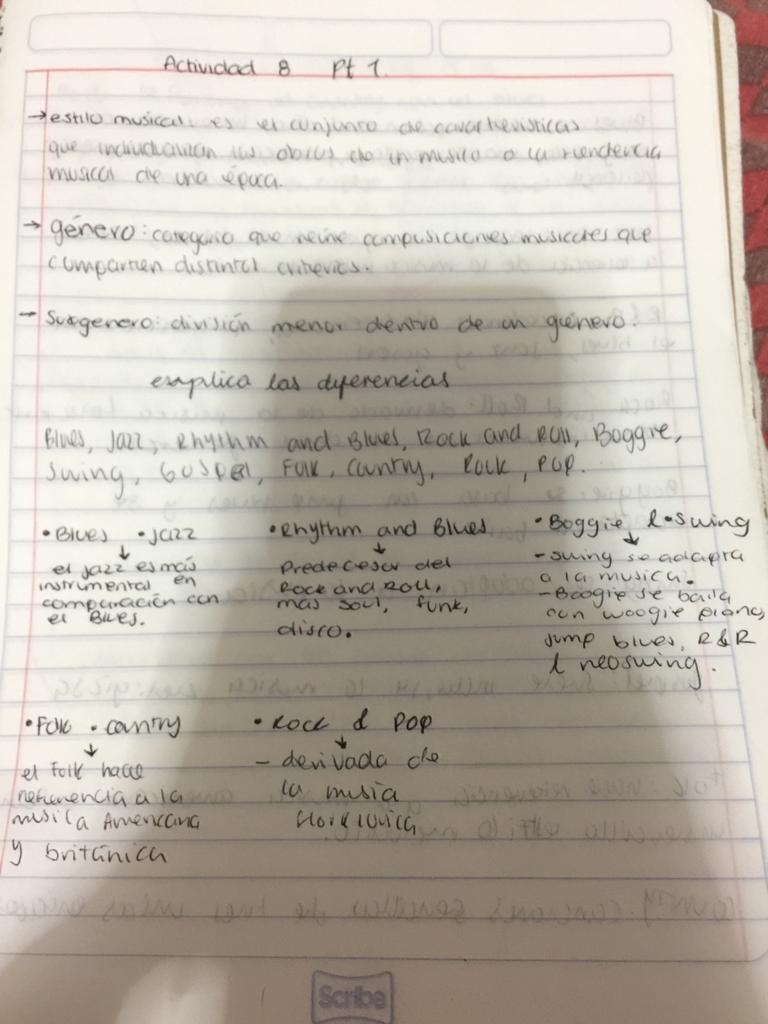 Actividad 8 Pt 1.
→ estilo musical: es el conjunto de características
que individualizan las obras de un musico o la tendencia
musical de una época.
→ género: categoria que reúne composiciones musicales que
comparten distintos criterios.
→ Subgenero: división menor dentro de un género.
explica las diferencias
Blues, Jazz, Rhythm and Blues, Rock and Roll, Boggie,
Swing, Gospel, Folk, Country, Rock, Pop.
• Blues • Jazz
↓
el jazz es más
instrumental en
comparación con
el Blues.
• Rhythm and Blues
↓
Predecesor del
Rock and Roll,
más soul, funk,
disco.
• Boggie & • swing
↓
- swing se adapta
a la musica.
- Boogie se baila
con woogie piano,
jump blues, R&R
& neoswing.
• Folk • country
↓
el Folk hace
referencia a la
música Americana
y británica
• Rock & Pop
↓
- derivada de
la musia
Scribe